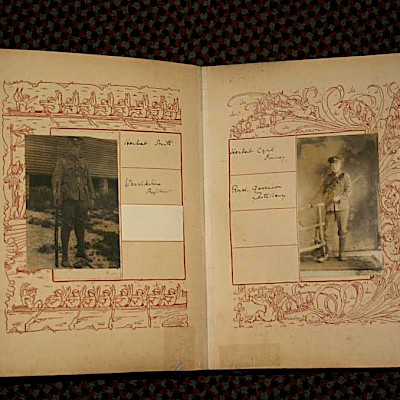 Herbert Smith
Regiment
Herbert Cyril
Royal Garrison
Artillery